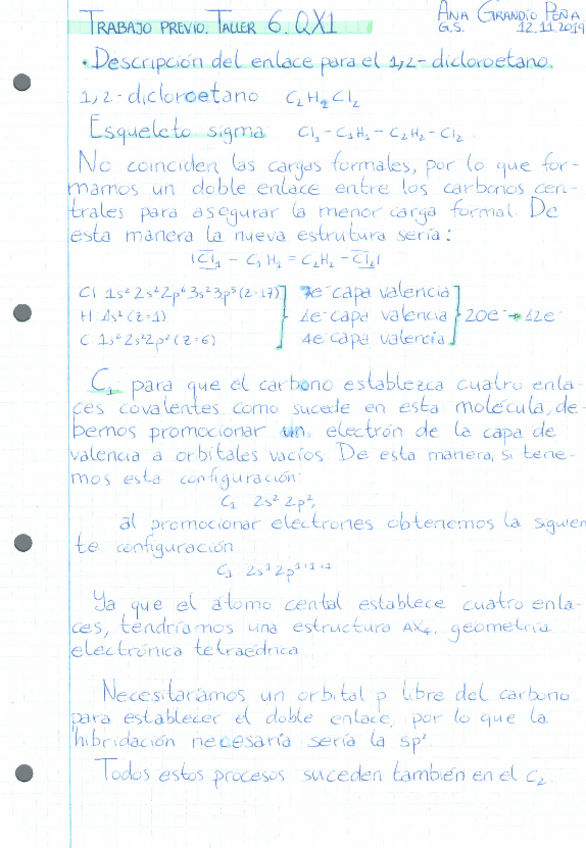 TRABAJO PREVIO. TALLER 6. QX1
ANA GRANDÍO PEÑA
G.S. 12.11.2019
· Descripción del enlace para el 1,2-dicloroetano.
1,2-dicloroetano C₂H₂Cl₂
Esqueleto sigma Cl₁ - C₁H₁ - C₂H₂ - Cl₂.
No coinciden las cargas formales, por lo que for-
mamos un doble enlace entre los carbonos cen-
trales para asegurar la menor carga formal. De
esta manera la nueva estrutura sería:
|Cl₁ - C₁H₁ = C₂H₂ - Cl₂|
Cl 1s² 2s² 2p⁶ 3s² 3p⁵ (z=17)] 7e⁻ capa valencia]
H 1s¹ (z=1) 1e⁻ capa valencia 20e⁻ → 12e⁻
C 1s² 2s² 2p² (z=6) 4e⁻ capa valencia
C₁ para que el carbono establezca cuatro enla-
ces covalentes como sucede en esta molécula, de-
bemos promocionar un electrón de la capa de
valencia a orbitales vacíos. De esta manera, si tene-
mos esta configuración:
C₁ 2s² 2p²,
al promocionar electrones obtenemos la siguien
te configuración
C₁ 2s¹ 2p¹⁺¹⁺¹
Ya que el átomo cental establece cuatro enla-
ces, tendríamos una estructura AX₄, geometría
electrónica tetraédrica
Necesitaríamos un orbital p libre del carbono
para establecer el doble enlace, por lo que la
hibridación necesaria sería la sp².
Todos estos procesos suceden también en el C₂